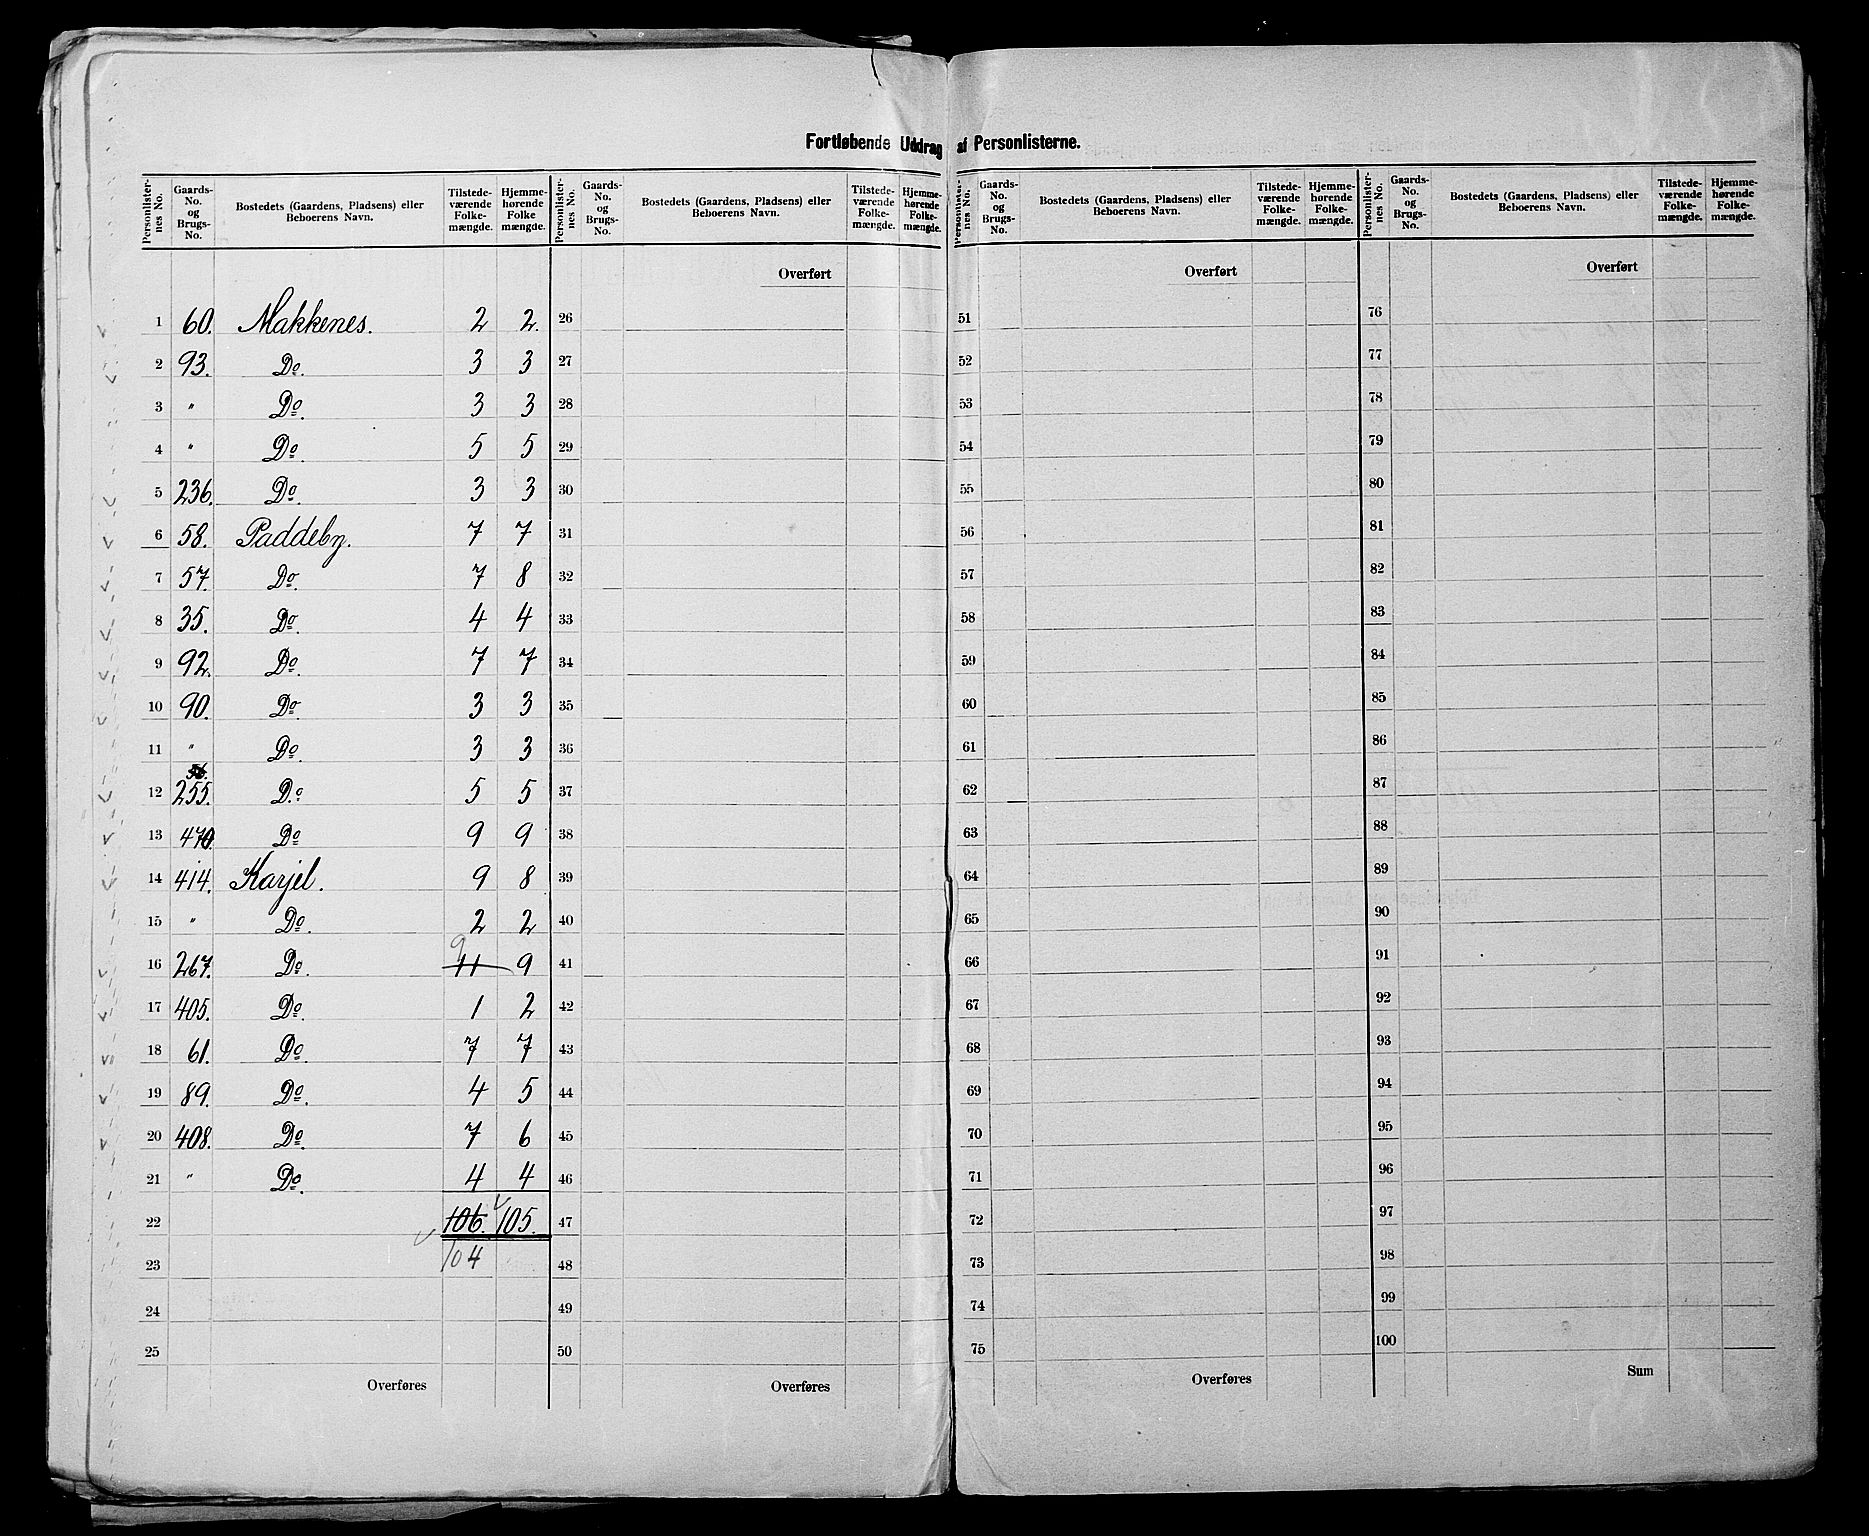 Fortløbende Uddrag af Personlisterne.
Personlister-nes No. Gaards-No. og Brugs-No. Bostedets (Gaardens, Pladsens) eller Beboerens Navn. Tilstede-værende Folke-mængde. Hjemme-hørende Folke mængde.
1 60. Makkenes. 2 2.
2 93. Do. 3 3
3 " Do. 3 3
4 " Do. 5 5
5 236. Do. 3 3
6 58. Paddeby. 7 7
7 57. Do. 7 8
8 35. Do. 4 4
9 92. Do. 7 7
10 90. Do. 3 3
11 " Do. 3 3
12 255. Do. 5 5
13 470. Do 9 9
14 414. Karjel. 9 8
15 " Do. 2 2
9
16 267. Do. 11 9
17 405. Do. 1 2
18 61. Do. 7 7
19 89. Do. 4 5
20 408. Do. 7 6
21 " Do. 4 4
22 106. 105.
23 104
24
25
Overføres
Personlister-nes No. Gaards-No. og Brugs-No. Bostedets (Gaardens, Pladsens) eller Beboerens Navn. Tilstede-værende Folke-mængde. Hjemme-hørende Folke-mængde.
Overført
26
27
28
29
30
31
32
33
34
35
36
37
38
39
40
41
42
43
44
45
46
47
48
49
50
Overføres
Personlister-nes No. Gaards-No. og Brugs-No. Bostedets (Gaardens, Pladsens) eller Beboerens Navn. Tilstede-værende Folke-mængde. Hjemme-hørende Folke-mængde.
Overført
51
52
53
54
55
56
57
58
59
60
61
62
63
64
65
66
67
68
69
70
71
72
73
74
75
Overføres
Personlister-nes No. Gaards-No. og Brugs-No. Bostedets (Gaardens, Pladsens) eller Beboerens Navn. Tilstede-værende Folke-mængde. Hjemme-hørende Folke-mængde.
Overført
76
77
78
79
80
81
82
83
84
85
86
87
88
89
90
91
92
93
94
95
96
97
98
99
100
Sum